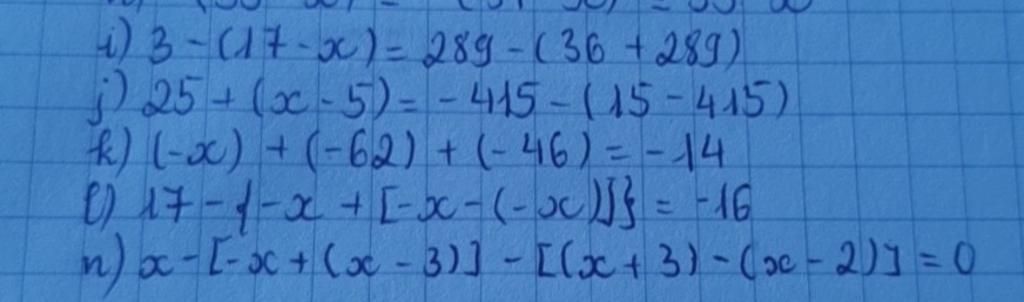 i) 3 - (17 - x) = 289 - (36 + 289)
j) 25 + (x - 5) = - 415 - (15 - 415)
k) (-x) + (-62) + (-46) = -14
l) 17 - {-x + [-x - (-x)]} = -16
n) x - [-x + (x - 3)] - [(x + 3) - (x - 2)] = 0